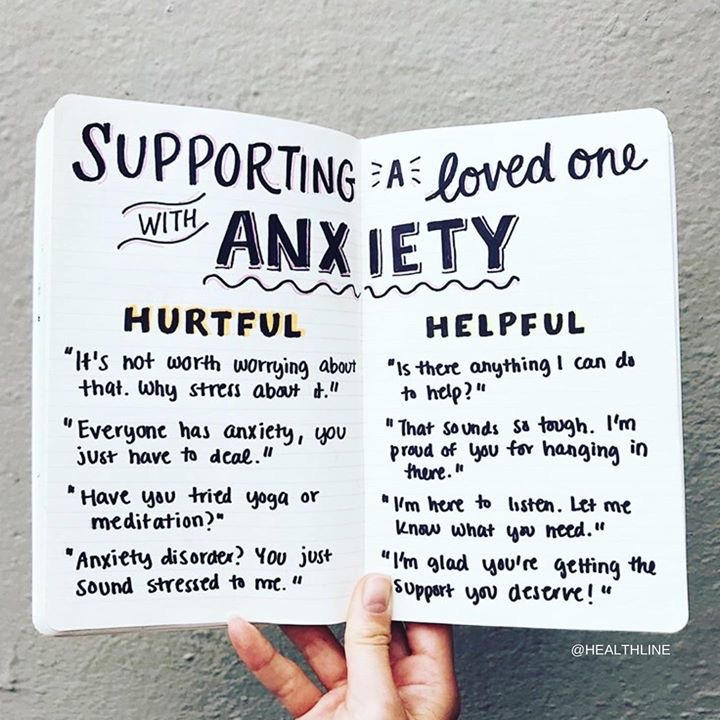 SUPPORTING A loved one
WITH ANXIETY
HURTFUL
"It's not worth worrying about
that. Why stress about it."
"Everyone has anxiety, you
just have to deal."
"Have you tried yoga or
meditation?"
"Anxiety disorder? You just
sound stressed to me."
HELPFUL
"Is there anything I can do
to help?"
"That sounds so tough. I'm
proud of you for hanging in
there."
"I'm here to listen. Let me
know what you need."
"I'm glad you're getting the
support you deserve!"
@HEALTHLINE